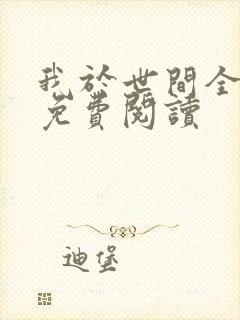 我於世間全
免費閱讀
迪堡